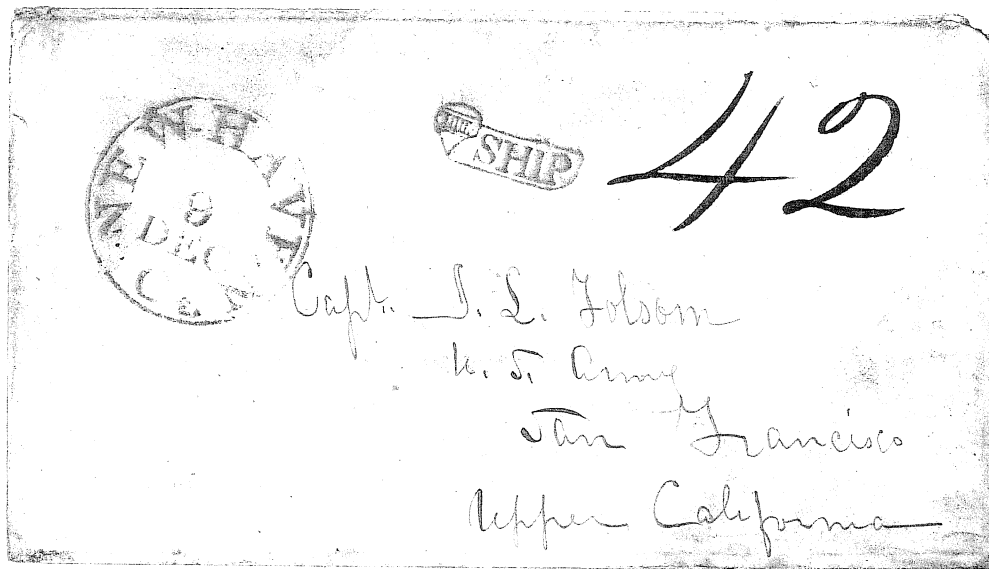 NEW HAVEN
8
DEC
Ct.
SHIP
42
Capt. J. L. Folsom
U. S. Army
San Francisco
Upper California